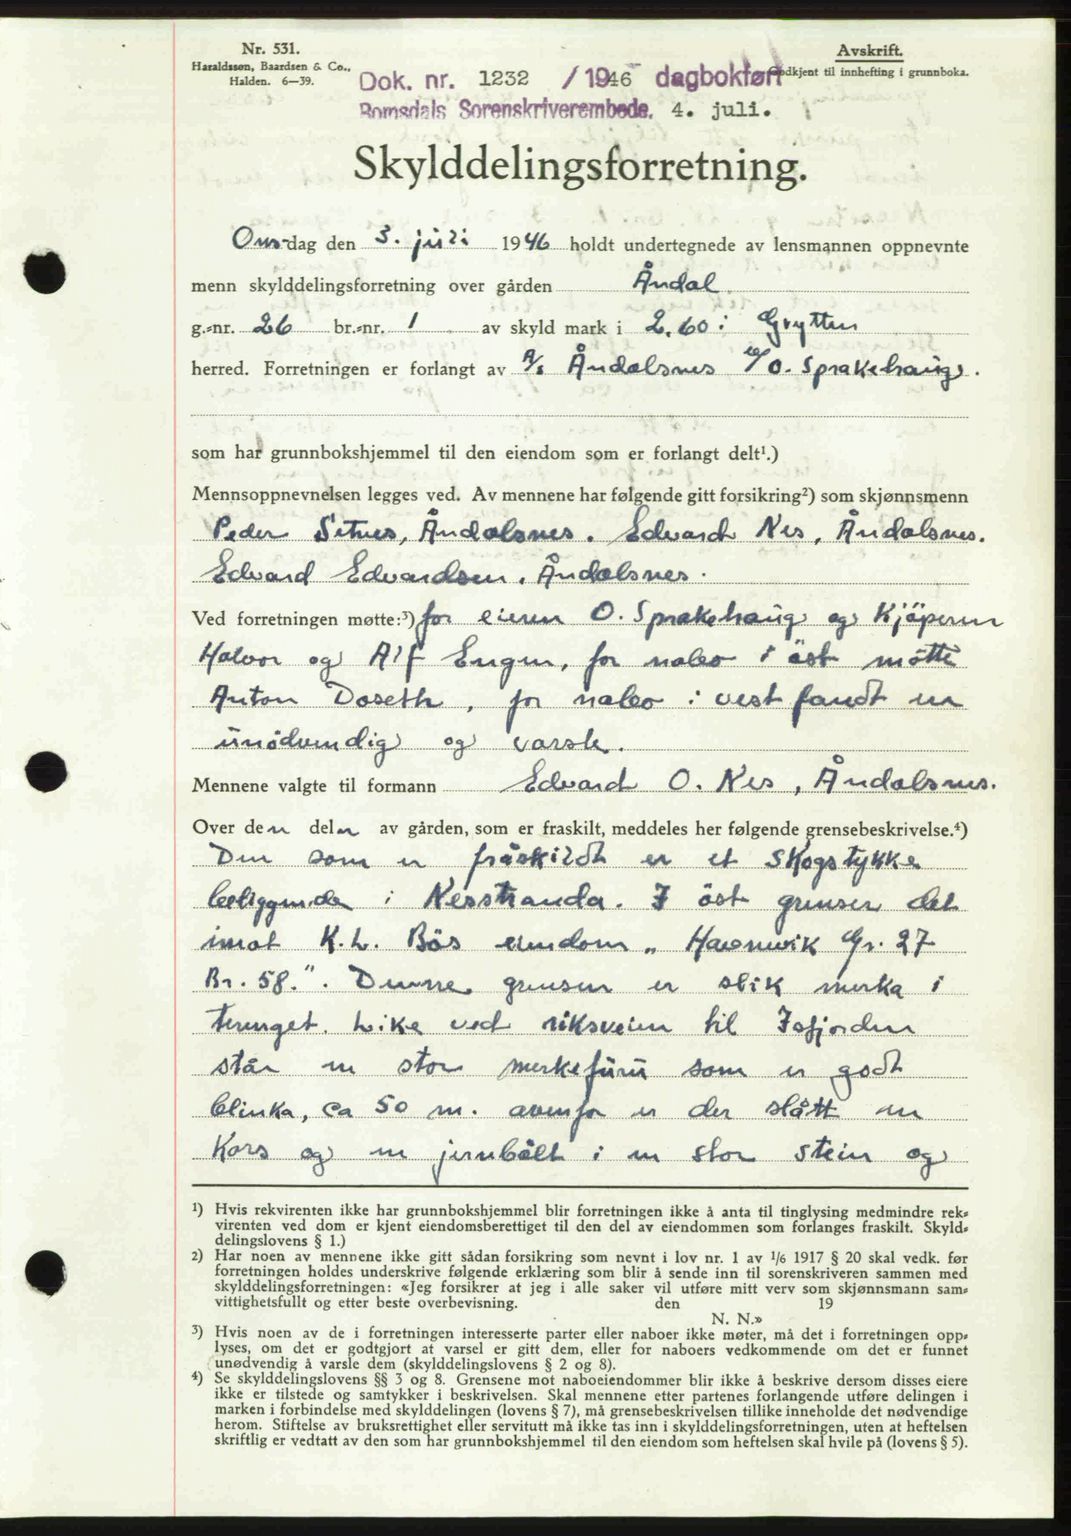 Nr. 531.
Haraldssøn, Baardsen & Co.,
Halden. 6—39.
Avskrift.
Godkjent til innhefting i grunnboka.
Dok. nr. 1232 /1946 dagbokført
Romsdals Sorenskriverembede. 4. juli.
Skylddelingsforretning.
Onsdag den 3. juli 1946 holdt undertegnede av lensmannen oppnevnte
menn skylddelingsforretning over gården Åndal
g.-nr. 26 br.-nr. 1 av skyld mark i 2.60 i Grytten
herred. Forretningen er forlangt av A/s Åndalsnes v/ O. Sprakehaug.
som har grunnbokshjemmel til den eiendom som er forlangt delt¹.)
Mennsoppnevnelsen legges ved. Av mennene har følgende gitt forsikring²) som skjønnsmenn
Peder Setnes, Åndalsnes. Edvard Nes, Åndalsnes.
Edvard Edvardsen, Åndalsnes.
Ved forretningen møtte:³) for eieren O. Sprakehaug og Kjöperne
Halvor og Alf Engen, for nabo i öst mötte
Anton Doseth, for nabo i vest fandt en
unödvendig og varsle.
Mennene valgte til formann Edvard O. Nes, Åndalsnes.
Over den delen av gården, som er fraskilt, meddeles her følgende grensebeskrivelse.⁴)
Den som er fraskildt er et skogstykke
beliggende i Nesstranda. I öst grenser det
imot K. L. Bös eiendom „ Havnevik Gr. 27
Br. 58.". Denne grensen er slik merka i
terenget. Like ved riksveien til Isfjorden
står en stor merkefuru som er godt
blinka, ca 50 m. ovenfor er der slått en
Kors og en jernbolt i en stor stein og
¹) Hvis rekvirenten ikke har grunnbokshjemmel blir forretningen ikke å anta til tinglysing medmindre rek-
virenten ved dom er kjent eiendomsberettiget til den del av eiendommen som forlanges fraskilt. Skyld-
delingslovens § 1.)
²) Har noen av mennene ikke gitt sådan forsikring som nevnt i lov nr. 1 av ¹/6 1917 § 20 skal vedk. før
forretningen holdes underskrive følgende erklæring som blir å sende inn til sorenskriveren sammen med
skylddelingsforretningen: «Jeg forsikrer at jeg i alle saker vil utføre mitt verv som skjønnsmann sam-
vittighetsfullt og etter beste overbevisning. den 19
N. N.»
³) Hvis noen av de i forretningen interesserte parter eller naboer ikke møter, må det i forretningen opp-
lyses, om det er godtgjort at varsel er gitt dem, eller for naboers vedkommende om det er funnet
unødvendig å varsle dem (skylddelingslovens § 2 og 8).
⁴) Se skylddelingslovens §§ 3 og 8. Grensene mot naboeiendommer blir ikke å beskrive dersom disses eiere
ikke er tilstede og samtykker i beskrivelsen. Skal mennene etter partenes forlangende utføre delingen i
marken i forbindelse med skylddelingen (lovens § 7), må grensebeskrivelsen tillike inneholde det nødvendige
herom. Stiftelse av bruksrettighet eller servitutt må ikke tas inn i skylddelingsforretningen, uten at heftelsen
skriftlig er vedtatt av den som har grunnbokshjemmel til den eiendom som heftelsen skal hvile på (lovens § 5).